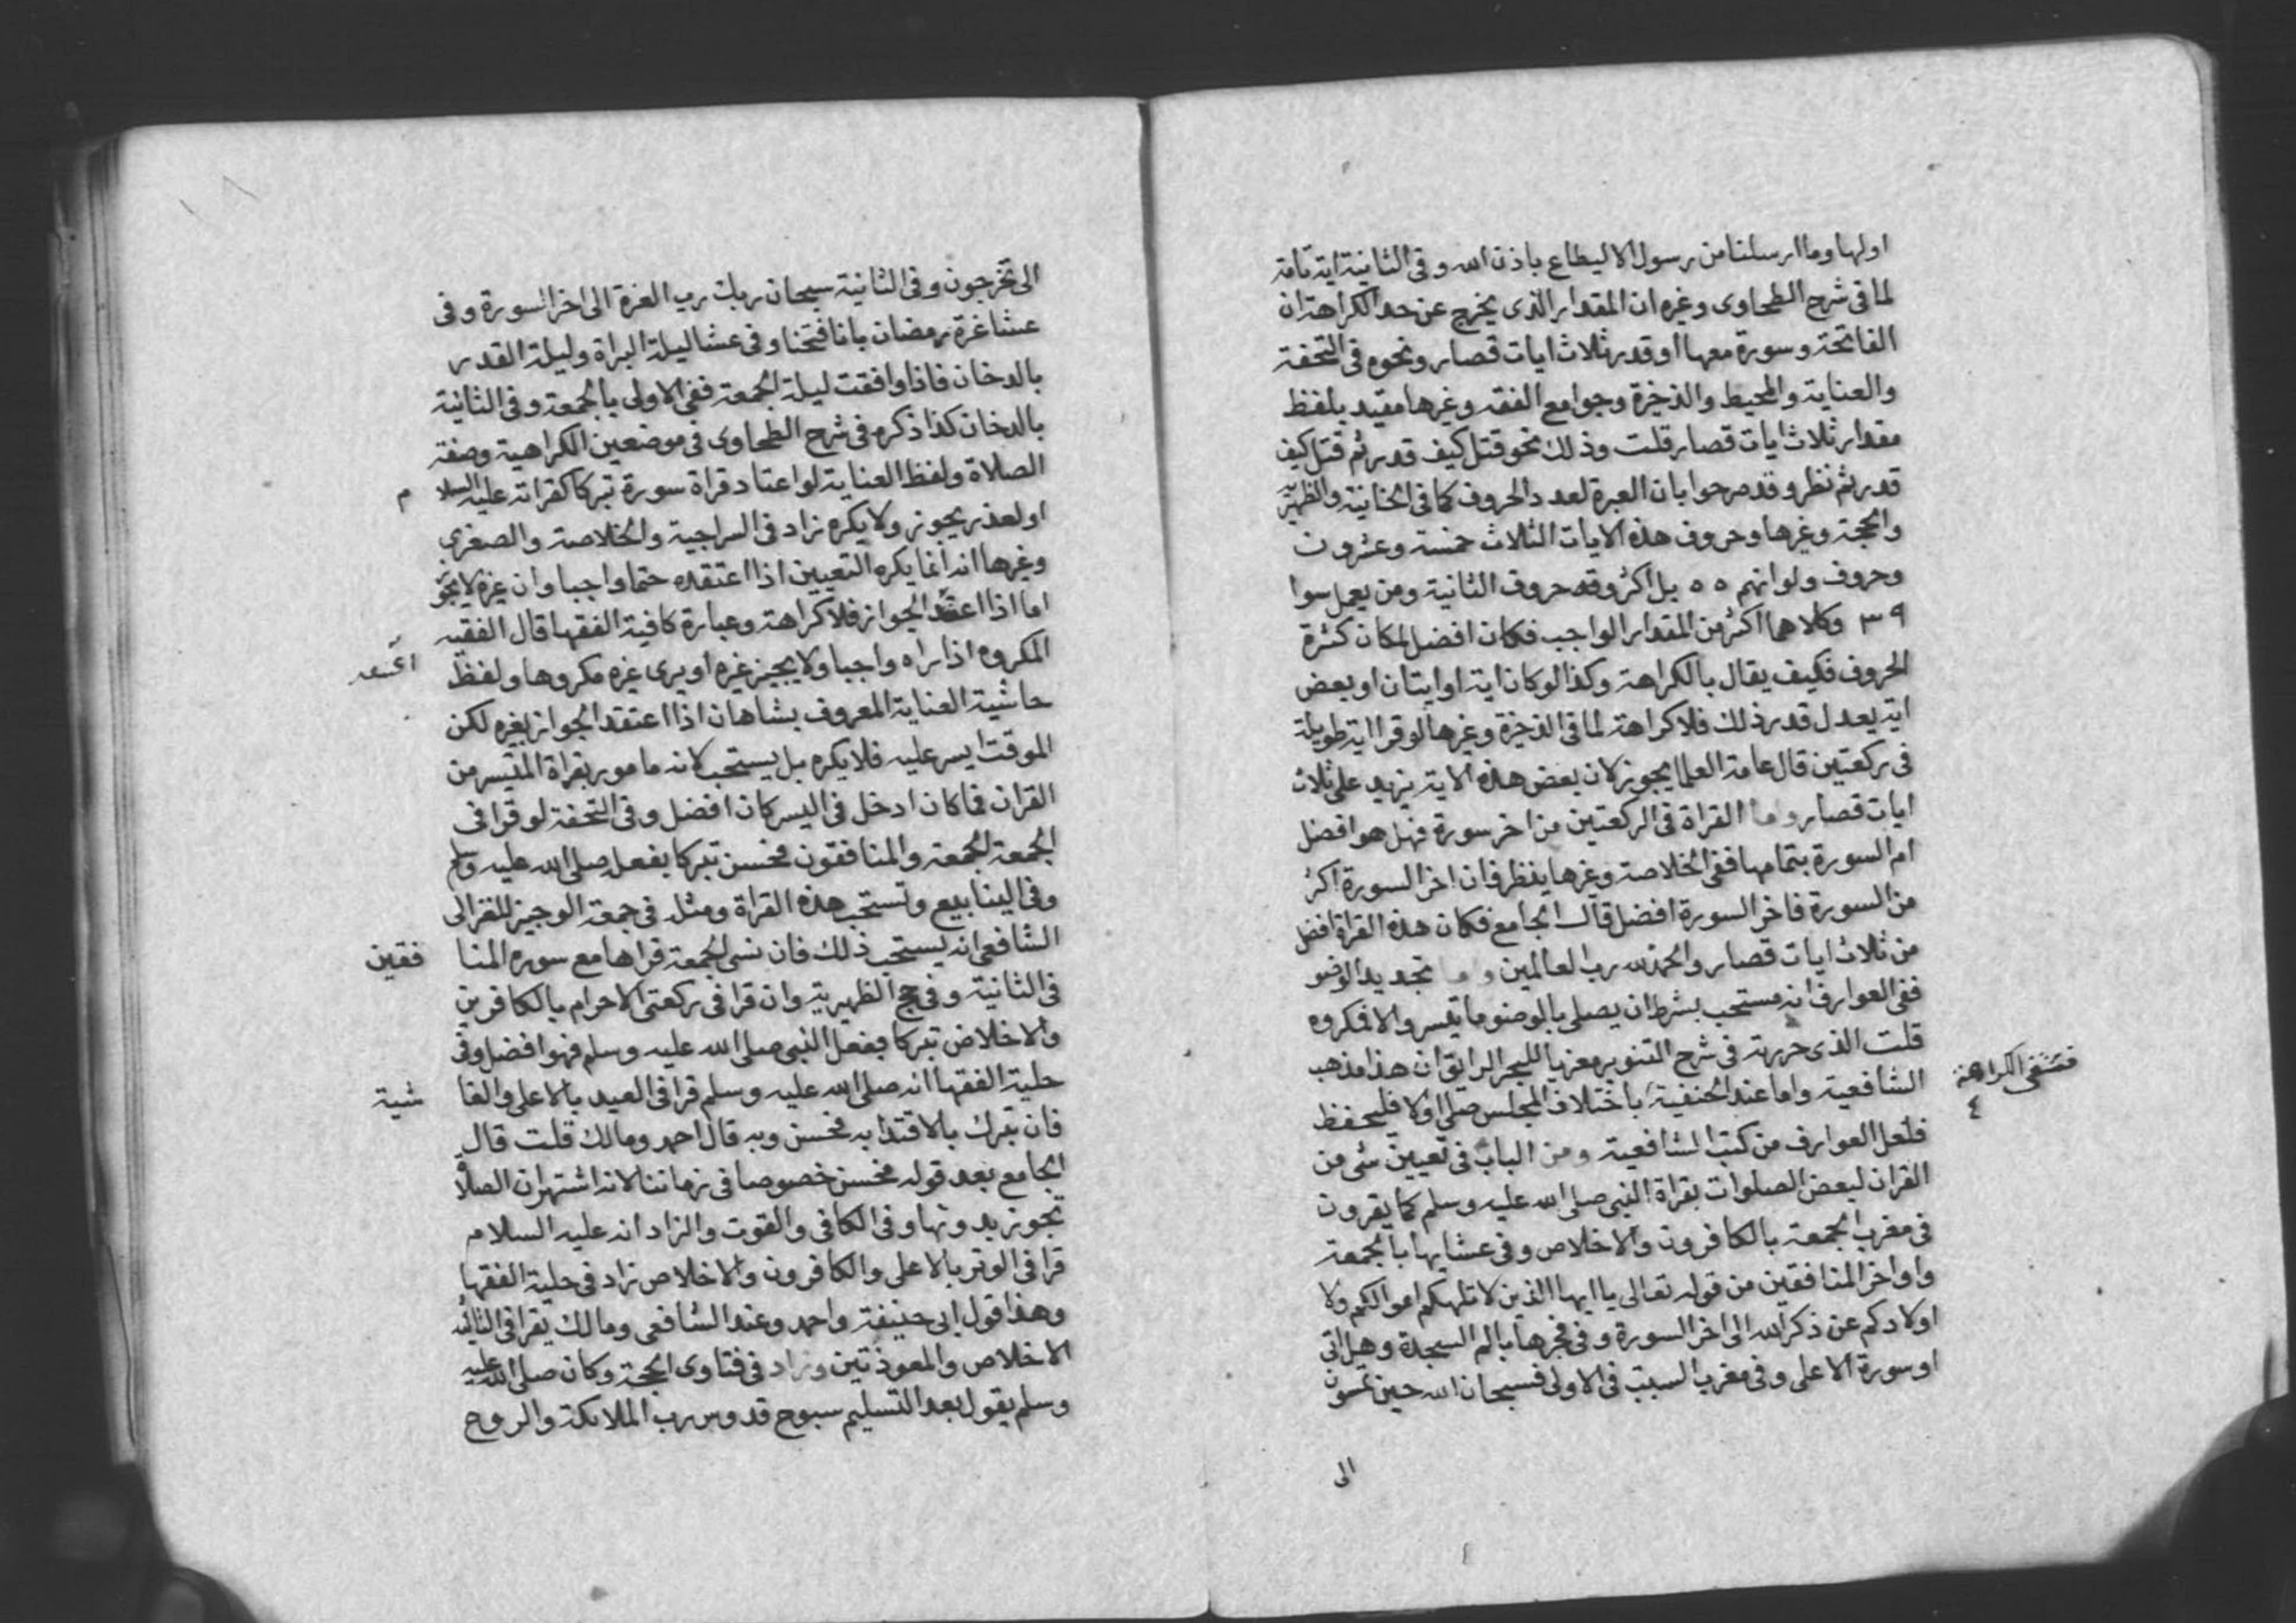 اولها وما ارسلنا من رسول الا ليطاع باذن الله وفى الثانية اية تامة
لما فى شرح الطحاوى وغيره ان المقدار الذى يخرج عن حد الكراهة ان
الفاتحة وسورة معها او قدر ثلاث ايات قصار ونحوه فى التحفة
والعناية والمحيط والذخيرة وجوامع الفقه وغيرها مقيد بلفظ
مقدار ثلاث ايات قصار قلت وذلك نحو قتل كيف قدر ثم قتل كيف
قدر ثم نظر وقد صرحوا بان العبرة لعدد الحروف كما فى الخانية والظهيرية
والحجة وغيرها وحروف هذه الايات الثلاث خمسة وعشرون
وحروف ولو انهم ٥٥ بل اكثر وقد حروف الثانية ومن يعمل سوا
٣٩ وكلاهما اكثر من المقدار الواجب فكان افضل لمكان كثرة
الحروف فكيف يقال بالكراهة وكذا لو كان اية او ايتان او بعض
اية يعدل قدر ذلك فلا كراهة لما فى الذخيرة وغيرها لو قرا اية طويلة
فى ركعتين قال عامة العلما يجوز لان بعض هذه الاية يزيد على ثلاث
ايات قصار واما القراة فى الركعتين من اخر سورة فهل هو افضل
ام السورة بتمامها ففى الخلاصة وغيرها ينظر فان اخر السورة اكثر
من السورة فاخر السورة افضل قال الجامع فكان هذه القراة افضل
من ثلاث ايات قصار والحمد لله رب العالمين واما تجديد الوضو
ففى العوارف انه مستحب بشرط ان يصلى بالوضو ما تيسر والا فمكروه
قلت الذى حررته فى شرح التنوير معزيا للبحر الرايق ان هذا مذهب
الشافعية واما عند الحنفية باختلاف المجلس صلى اولا فليحفظ
فتنتفى الكراهة
٤
فلعل العوارف من كتب الشافعية ومن الباب فى تعيين شى من
القران لبعض الصلوات بقراة النبى صلى الله عليه وسلم كما يقرون
فى مغرب الجمعة بالكافرون والاخلاص وفى عشايها بالجمعة
واواخر المنافقين من قوله تعالى يا ايها الذين لا تلهكم اموالكم ولا
اولادكم عن ذكر الله الى اخر السورة وفى فجرها بالم السجدة وهل اتى
او سورة الاعلى وفى مغرب السبت فى الاولى فسبحان الله حين تمسون
الى
الى تخرجون وفى الثانية سبحان ربك رب العزة الى اخر السورة وفى
عشا غرة رمضان بانا فتحنا وفى عشا ليلة البراة وليلة القدر
بالدخان فاذا وافقت ليلة الجمعة ففى الاولى بالجمعة وفى الثانية
بالدخان كذا ذكره فى شرح الطحاوى فى موضعين الكراهية وصفة
الصلاة ولفظ العناية لو اعتاد قراة سورة تبركا كقراته عليه السلا م
او لعذر يجوز ولا يكره زاد فى السراجية والخلاصة والصغرى
وغيرها انه انما يكره التعيين اذا اعتقده حتما واجبا وان غيره لا يجوز
اما اذا اعتقد الجواز فلا كراهة وعبارة كافية الفقها قال الفقيه
المكروه اذا راه واجبا ولا يجيز غيره او يرى غيره مكروها ولفظ
حاشية العناية المعروف بشاهان اذا اعتقد الجواز بغيره لكن
الموقت ايسر عليه فلا يكره بل يستحب لانه مامور بقراة المتيسر من
القران فما كان ادخل فى اليسر كان افضل وفى التحفة لو قرا فى
الجمعة الجمعة والمنافقون فحسن تبركا بفعل صلى الله عليه وسلم
وفى الينابيع وتستحب هذه القراة ومثله فى جمعة الوجيز للغزالى
الشافعى انه يستحب ذلك فان نسى الجمعة قراها مع سوره المنا فقين
فى الثانية وفى حج الظهيرية وان قرا فى ركعتى الاحرام بالكافرين
والاخلاص تبركا بفعل النبى صلى الله عليه وسلم فهو افضل وفى
حلية الفقها انه صلى الله عليه وسلم قرا فى العيد بالاعلى والغا شية
فان تبرك بالاقتدا به فحسن وبه قال احمد ومالك قلت قال
الجامع بعد قوله فحسن خصوصا فى زماننا لانه اشتهر ان الصلاة
تجوز بدونها وفى الكافى والقوت والزاد انه عليه السلام
قرا فى الوتر بالاعلى والكافرون والاخلاص زاد فى حلية الفقها
وهذا قول ابى حنيفة واحمد وعند الشافعى ومالك يقرا فى الثالثة
الاخلاص والمعوذتين وزاد فى فتاوى الحجة وكان صلى الله عليه
وسلم يقول بعد التسليم سبوح قدوس رب الملائكة والروح